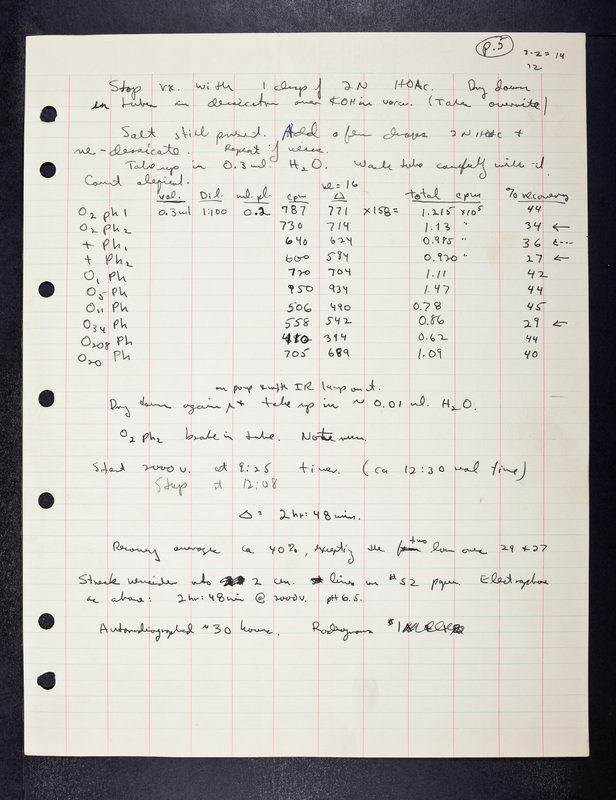 p.5
3-2 = 14
12
Stop rx. with 1 drop of 2N HOAc. Dry down
in tubes in dessicator over KOH in vacuo. (Takes overnite)
Salt still present. Add a few drops 2N HOAc +
re-dessicate. Repeat if necess.
Take up in 0.3 ml. H2O. Wash tube carefully with it.
Count aliquot.
bl = 16
vol. Dil. ml. pl. cpm Δ total cpm % recovery
O2 ph 1 0.3 ml 1:100 0.2 787 771 ×158= 1.215 ×10⁵ 44
O2 ph2 730 714 1.13 " 34 ←
+ Ph1 640 624 0.985 " 36 ←---
+ Ph2 600 584 0.920 " 27 ←
O1 Ph 720 704 1.11 42
O5 Ph 950 934 1.47 44
O11 Ph 506 490 0.78 45
O34 Ph 558 542 0.86 29 ←
O208 Ph 410 394 0.62 44
O20 Ph 705 689 1.09 40
on pump with IR lamp on it.
Dry down again + take up in ~ 0.01 ml. H2O.
O2 Ph2 broke in tube. Note run.
Start 2000 v. at 9:25 timer. (ca 12:30 real time)
Stop at 12:08
Δ = 2 hr: 48 mins.
Recovery averages ca 40%, excepting the two low ones 29 + 27
Streak remainder into 2 cm. lines on #52 paper. Electrophorese
as above: 2 hr: 48 min @ 2000v. pH 6.5.
Autoradiographed ~ 30 hours.